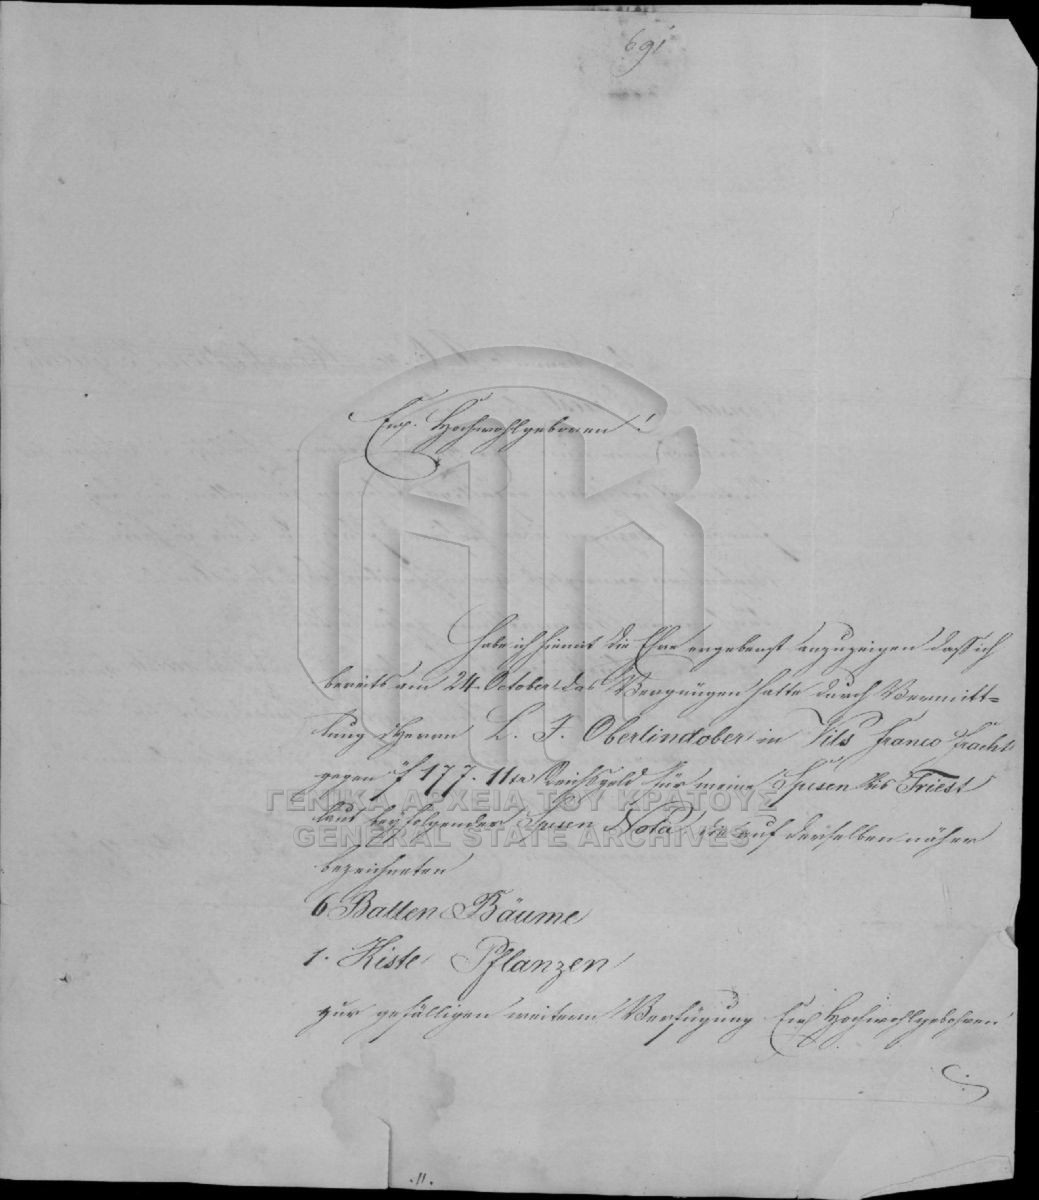 691
Euer Hochwohlgeboren!
Habe ich hiemit die Ehre ergebenst anzuzeigen dass ich
bereits am 24. October das Vergnügen hatte durch Vermitt=
lung Herrn L. J. Oberlindober in Vils franco Fracht
gegen f 177. 11 Reichsgeld für meine Spesen bis Triest
laut beyfolgender Spesen Nota die auf derselben näher
bezeichneten
6 Ballen Bäume
1. Kiste Pflanzen
zur gefälligen weitern Verfügung Euer Hochwohlgebohren
ΓΕΝΙΚΑ ΑΡΧΕΙΑ ΤΟΥ ΚΡΑΤΟΥΣ
GENERAL STATE ARCHIVES